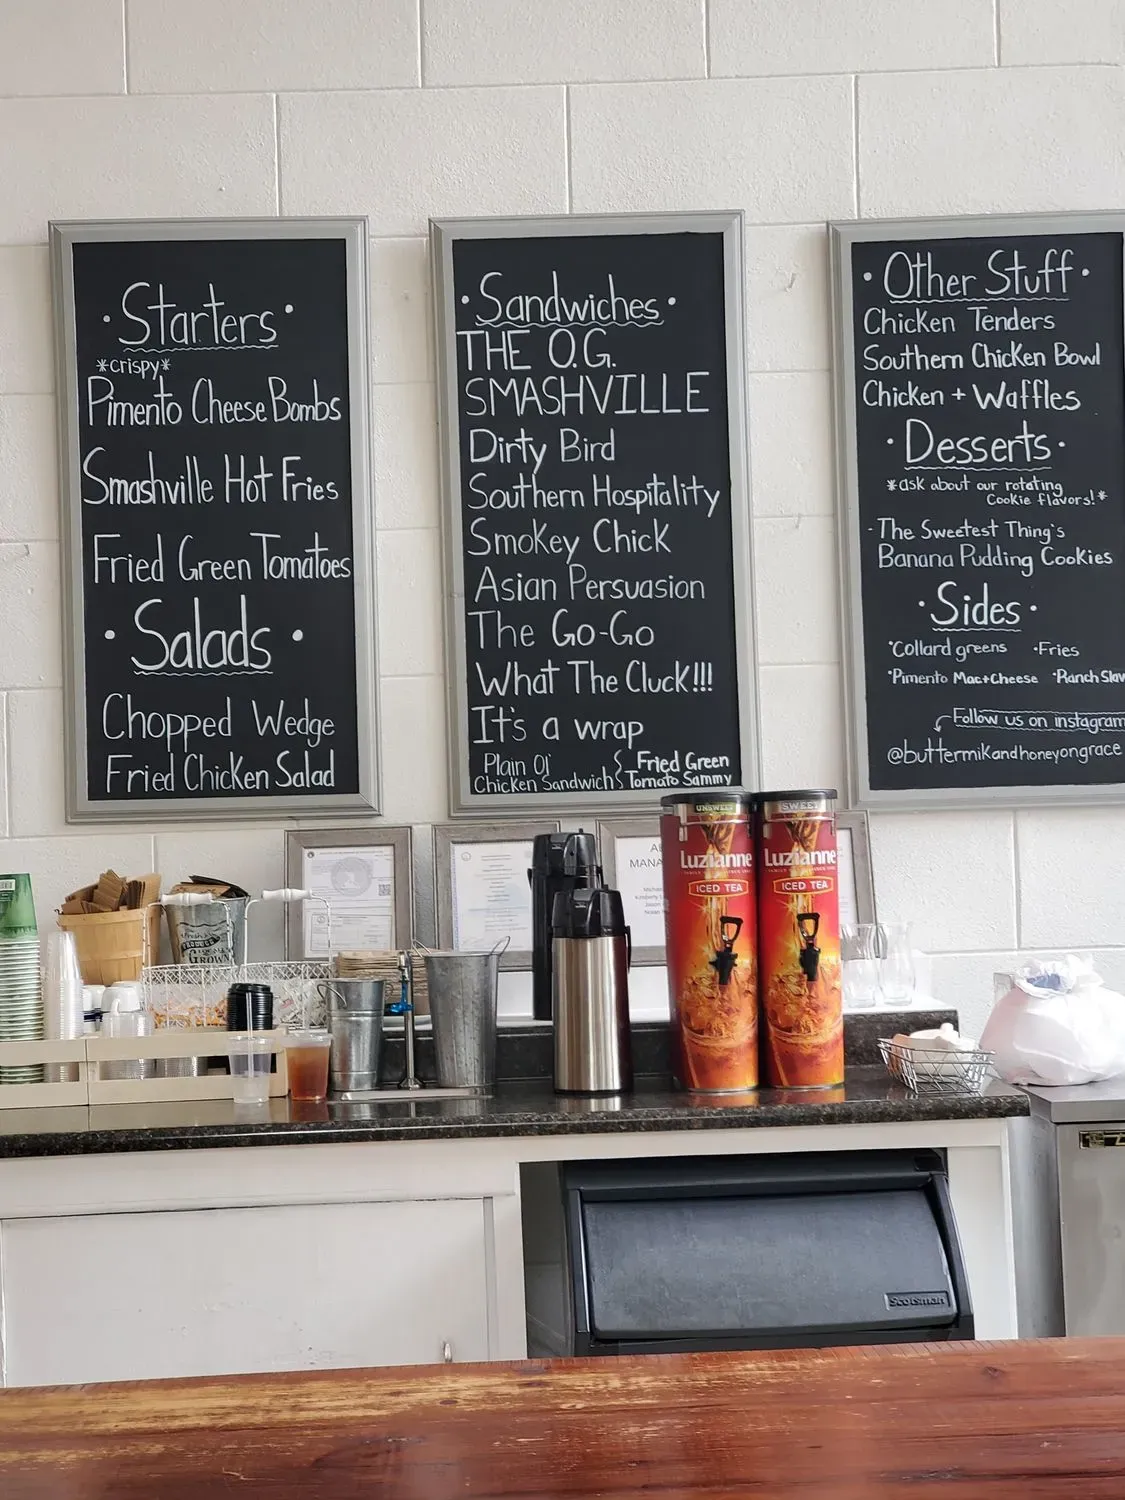 • Starters •
*crispy*
Pimento Cheese Bombs
Smashville Hot Fries
Fried Green Tomatoes
• Salads •
Chopped Wedge
Fried Chicken Salad
• Sandwiches •
THE O.G.
SMASHVILLE
Dirty Bird
Southern Hospitality
Smokey Chick
Asian Persuasion
The Go-Go
What The Cluck!!!
It's a wrap
Plain Ol'
Chicken Sandwich
Fried Green
Tomato Sammy
• Other Stuff •
Chicken Tenders
Southern Chicken Bowl
Chicken + Waffles
• Desserts •
*ask about our rotating
Cookie flavors!*
- The Sweetest Thing's
Banana Pudding Cookies
• Sides •
•Collard greens •Fries
•Pimento Mac+Cheese •Ranch Slaw
Follow us on instagram
@buttermilkandhoneyongrace
UNSWEET
Luzianne
ICED TEA
SWEET
Luzianne
ICED TEA
MANA
PRODUCE
GROWN
Scotsman